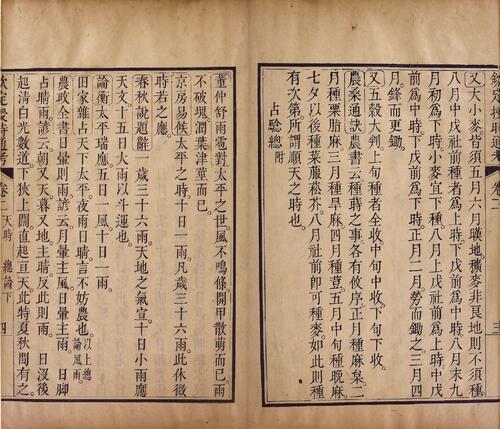 欽定授時通考 卷二 三
又大小麥皆須五月六月暵地穬麥非良地則不須種
八月中戊社前種者為上時下戊前為中時八月末九
月初為下時小麥宜下種八月上戊社前為上時中戊
前為中時下戊前為下時正月二月勞而鋤之三月四
月鋒而更鋤
又五穀大判上旬種者全收中旬中收下旬下收
農桑通訣農書云種蒔之事各有攸序正月種麻枲二
月種粟脂麻三月種早麻四月種荳五月中旬種晚麻
七夕以後種萊菔菘芥八月社前即可種麥如此則種
有次第所謂順天之時也
占驗總附
董仲舒雨雹對太平之世風不鳴條開甲散萌而已雨
不破塊潤葉津莖而已
京房易候太平之時十日一雨凡歲三十六雨此休徵
時若之應
春秋說題辭一歲三十六雨天地之氣宣十日小雨應
天文十五日大雨以斗運也
論衡太平瑞應五日一風十日一雨
田家雜占天下太平夜雨日晴言不妨農也以上總論風雨
農政全書日暈則雨諺云月暈主風日暈主雨 日腳
占晴雨諺云朝又天暮又地主晴反此則雨 日沒後
起清白光數道下狹上闊直起亘天此特夏秋間有之
欽定授時通考 卷二 天時 總論下 四